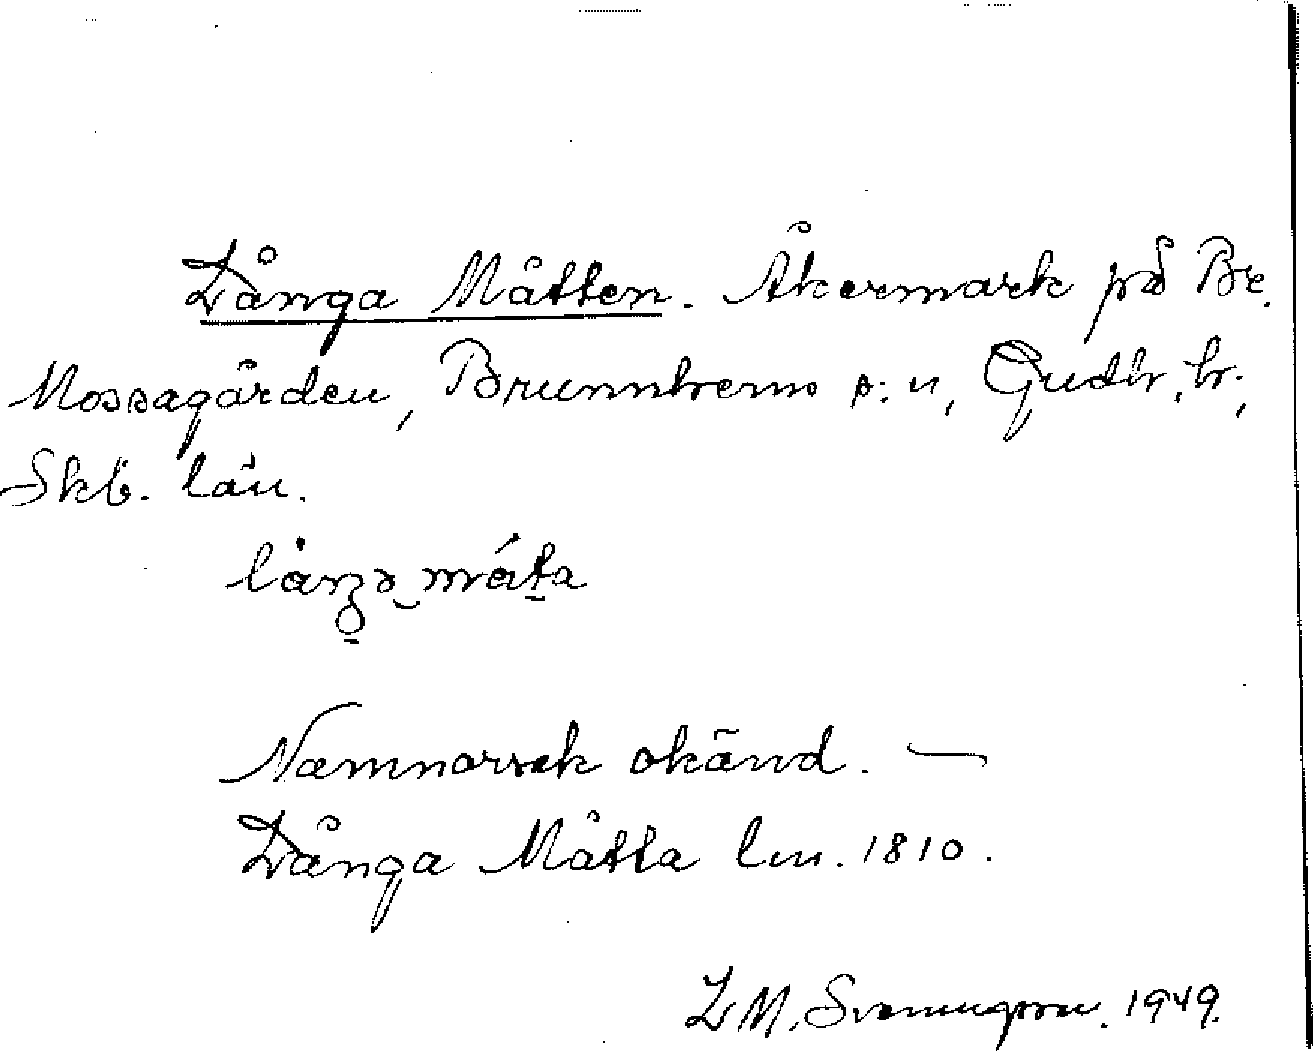 Långa Måtten. Åkermark på Br.
Mossagården, Brunnhems s:n, Gudh. hr,
Skb. län.
Namnorsak okänd. —
Långa Måtta lm. 1810.
L M. Svenungsson. 1949.